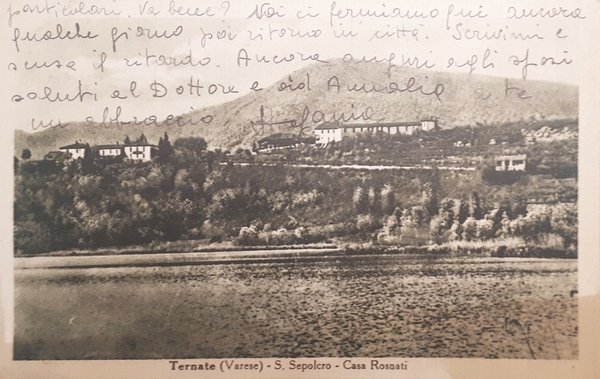 particolari. Va bene? Noi ci fermiamo qui ancora
qualche giorno poi ritorno in città. Scrivimi e
scusa il ritardo. Ancora auguri agli sposi
saluti al Dottore e ad Amalia e a te
un abbraccio Stefania
Ternate (Varese) - S. Sepolcro - Casa Rosnati